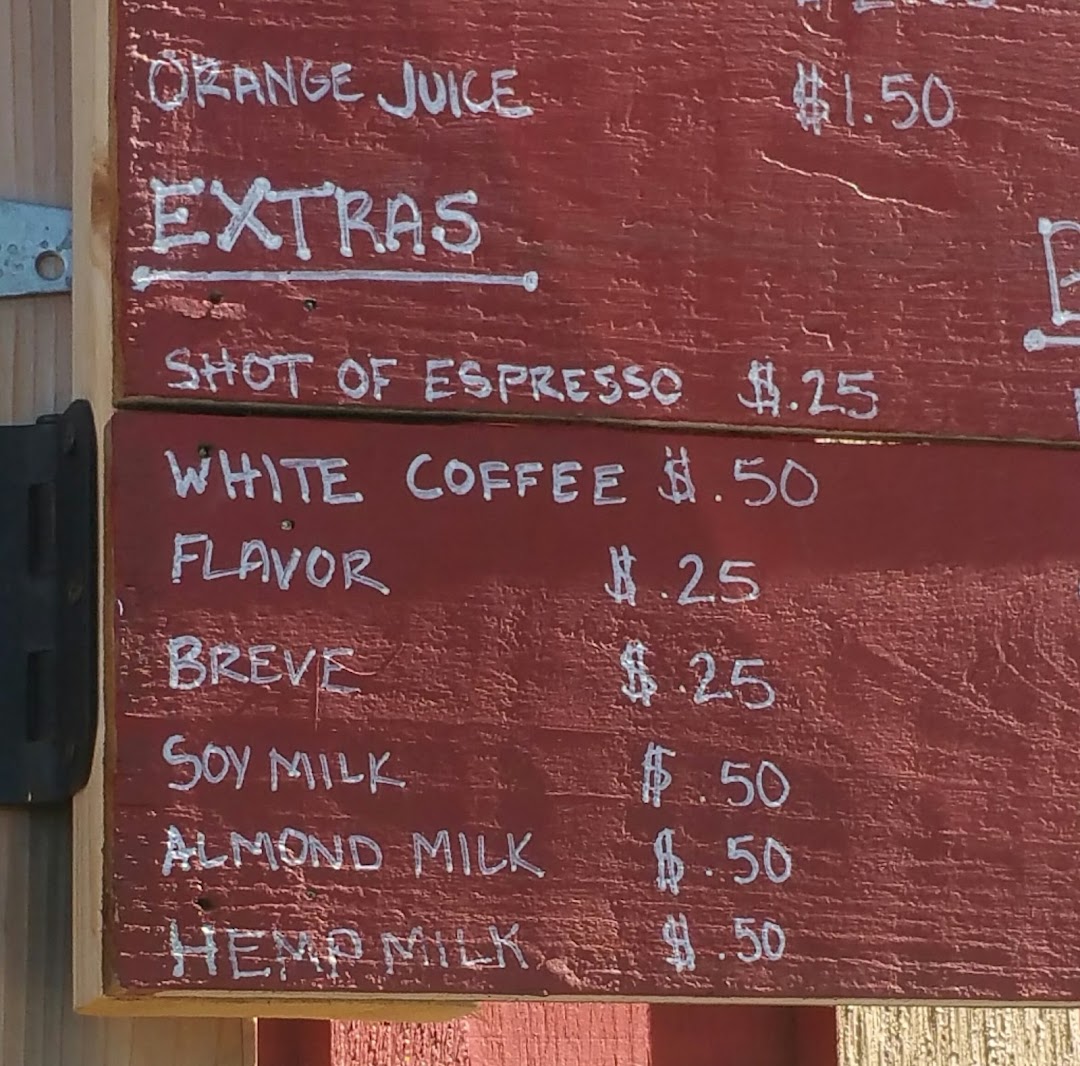 ORANGE JUICE $1.50
EXTRAS
SHOT OF ESPRESSO $.25
WHITE COFFEE $.50
FLAVOR $.25
BREVE $.25
SOY MILK $.50
ALMOND MILK $.50
HEMP MILK $.50